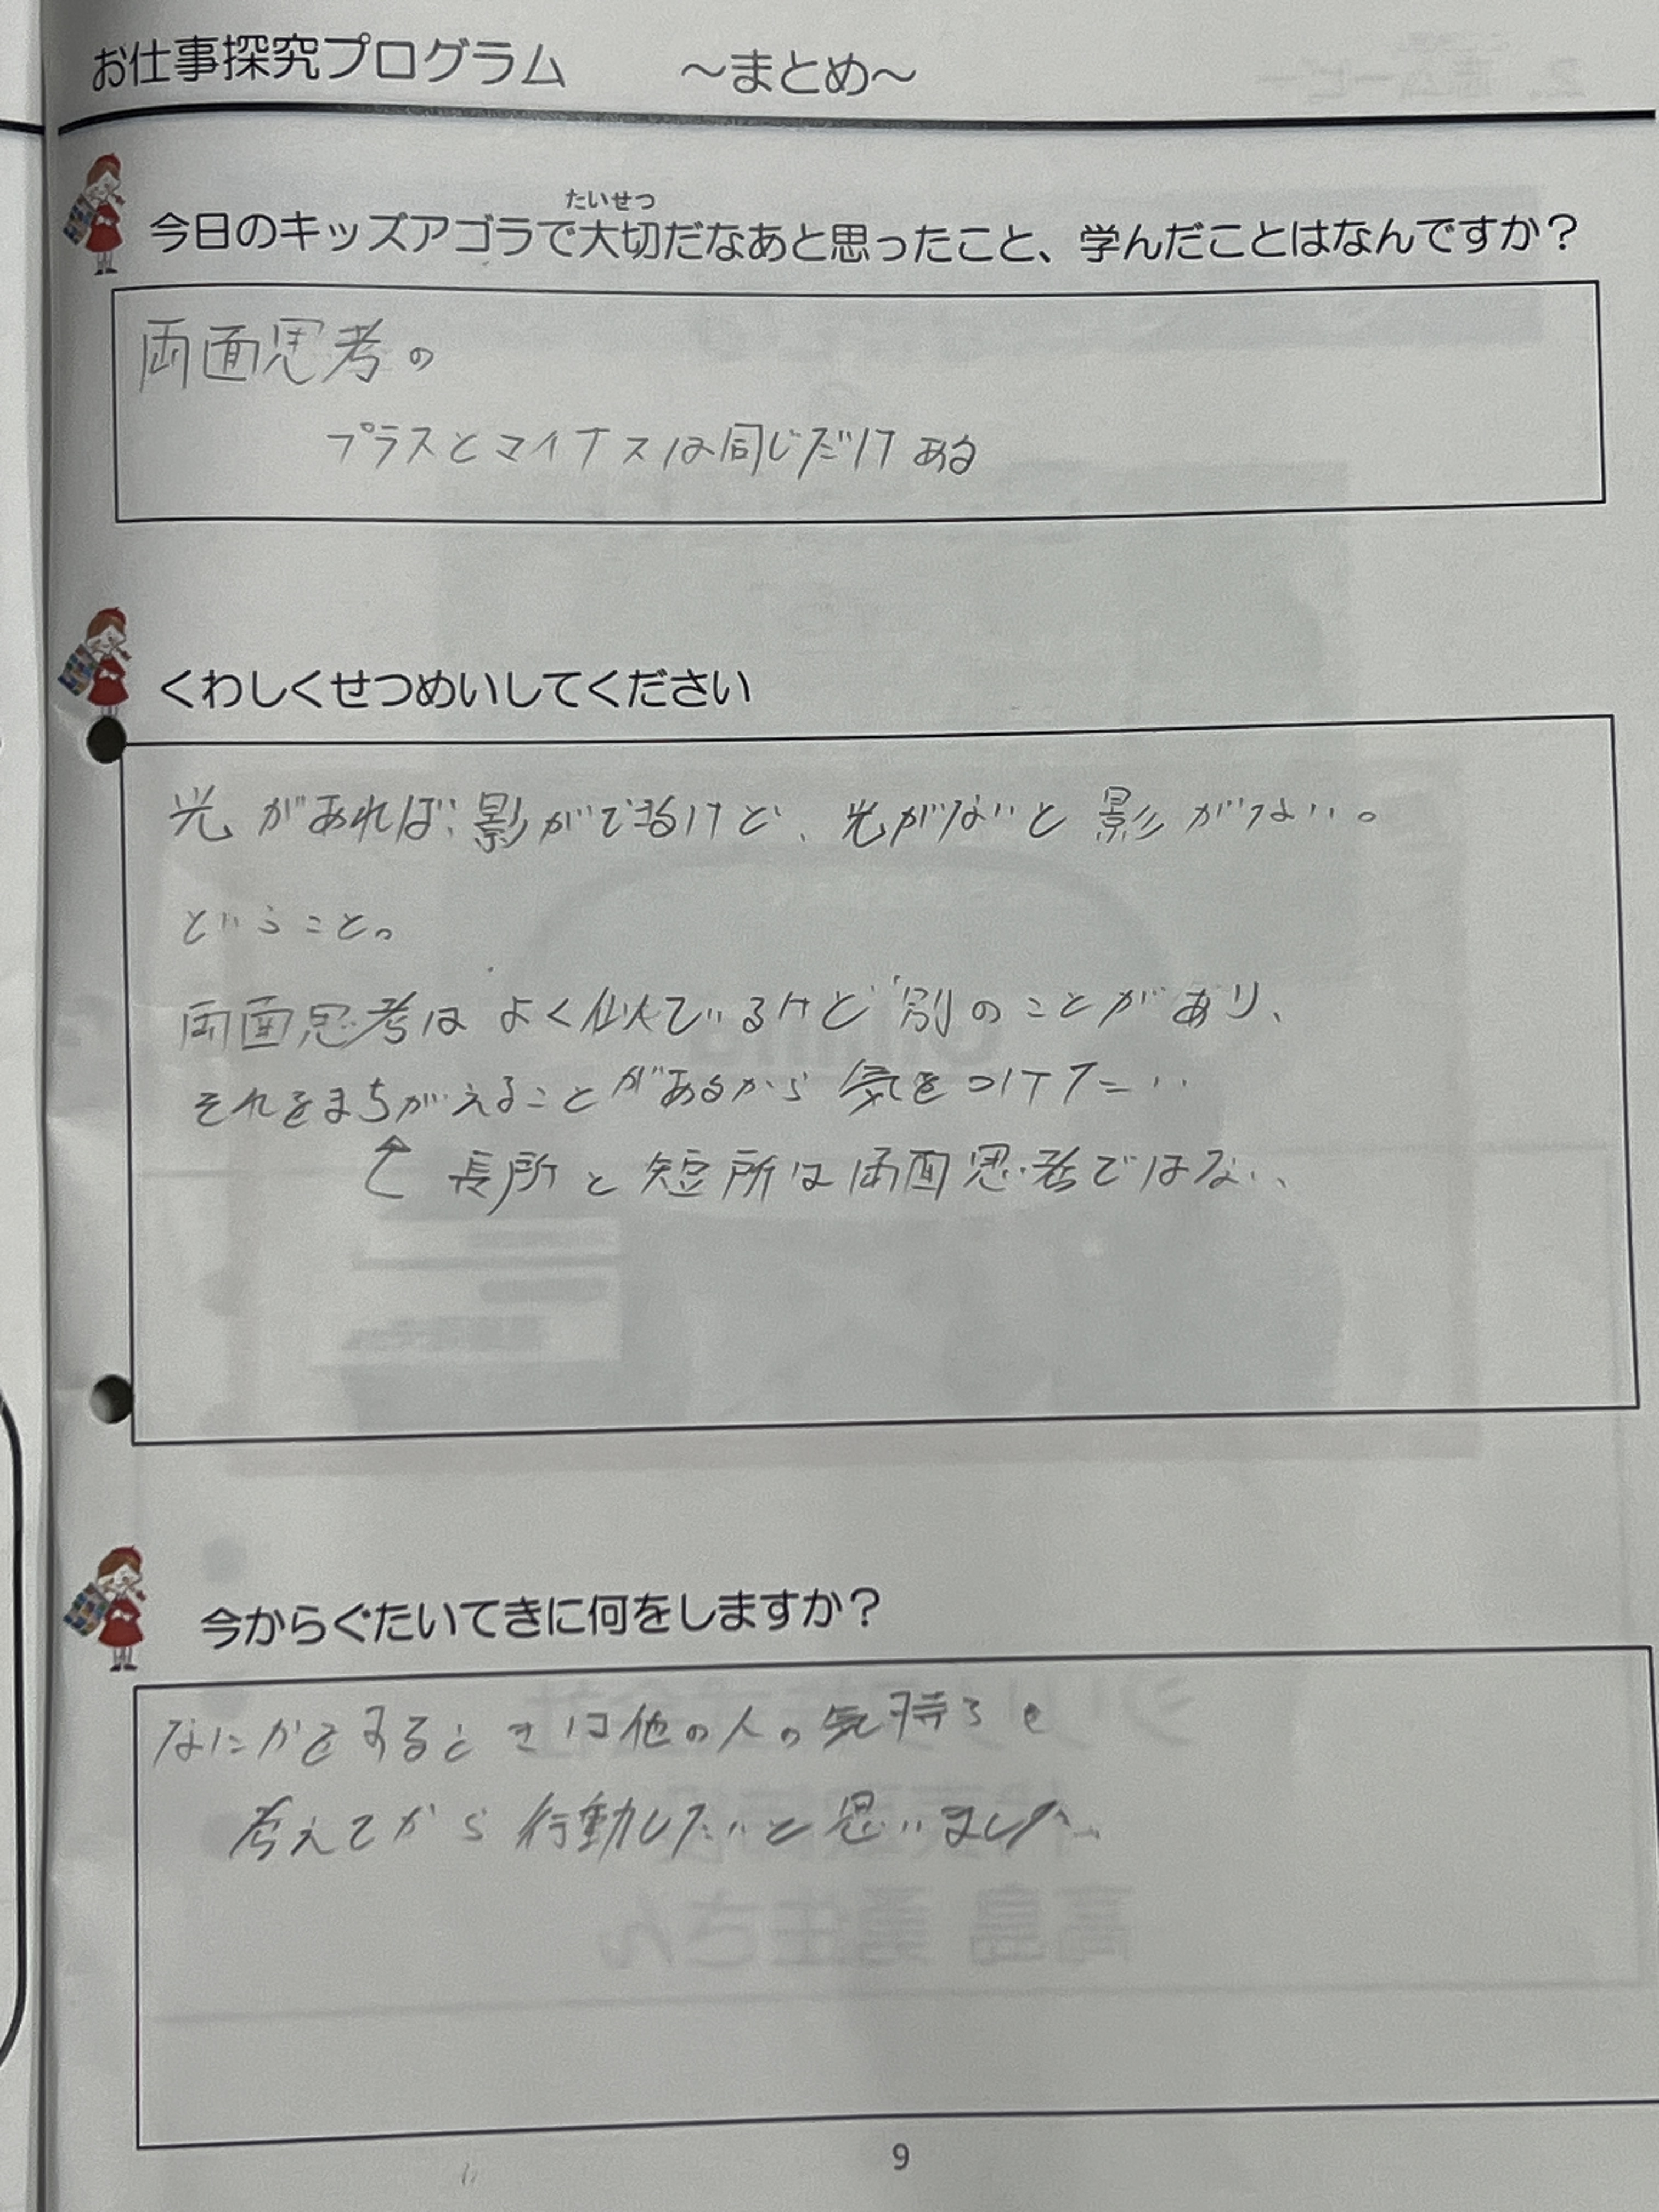 お仕事探究プログラム　～まとめ～
たいせつ
今日のキッズアゴラで大切だなあと思ったこと、学んだことはなんですか？
両面思考の
プラスとマイナスは同じだけある
くわしくせつめいしてください
光があれば影ができるけど、光がないと影がない。
ということ。
両面思考はよく似ているけど別のことがあり、
それをまちがえることがあるから気をつけたい
↑長所と短所は両面思考ではない、
今からぐたいてきに何をしますか？
なにかをするときは他の人の気持ちを
考えてから行動したいと思いました
9